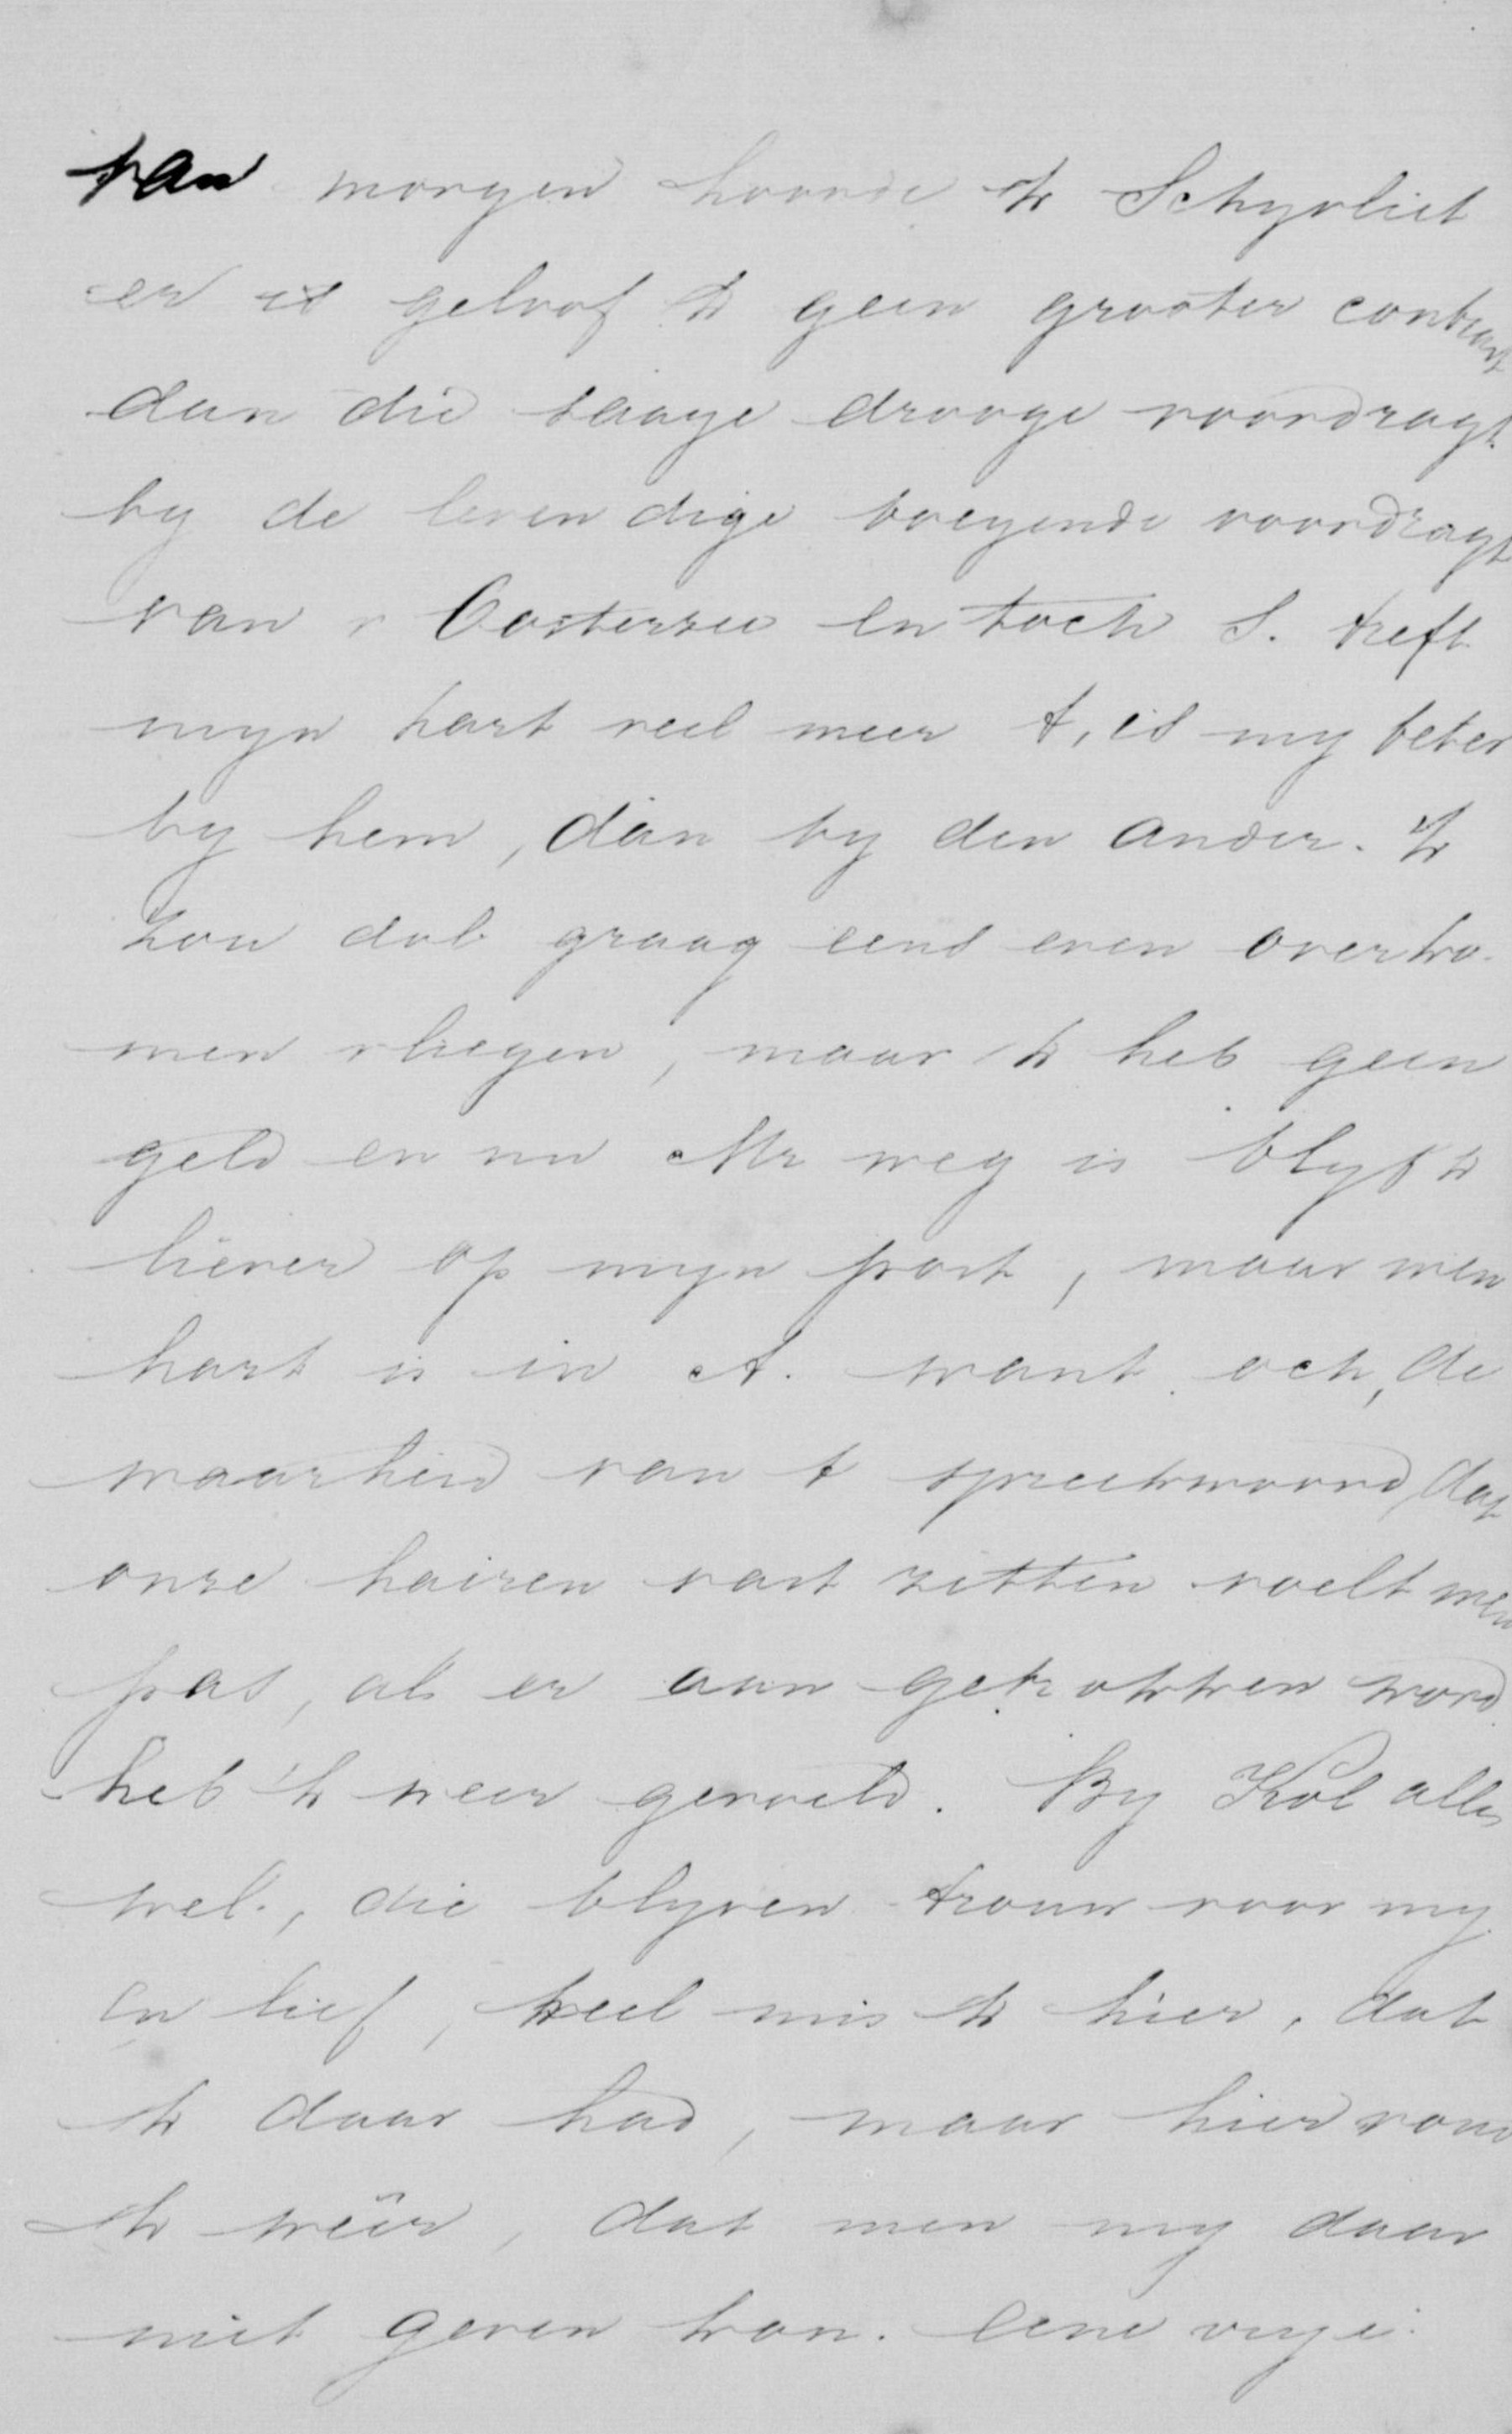 van morgen hoorde ik Schyvliet
er is geloof ik geen grooter contrast
dan die taaye drooge voordragt
by de levendige boeyende voordragt
van v Oosterzee en toch S. treft
myn hart veel meer t, is my beter
by hem, dan by den ander. Ik
zou dol graag eens even overko-
men vliegen, maar ik heb geen
geld en nu Mr weg is blyf ik
liever op myn post, maar men
hart is in A. want och, de
waarheid van t spreekwoord, dat
onze hairen vast zitten voelt men
pas, als er aan getrokken word
heb ik weer gevoeld. By Kol alles
wel, die blyven trouw voor my
en lief, veel mis ik hier, dat
ik daar had, maar hier vond
ik wéér, dat men my daar
niet geven kon. Eene vrye